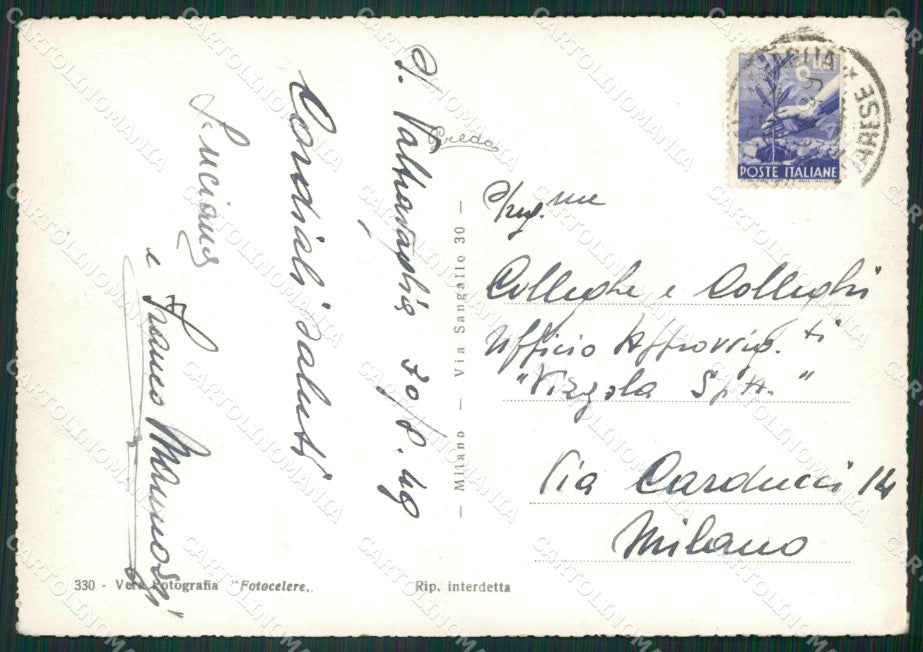 P. Valtravaglia 30/8.49
Cordiali saluti
Luciana
e Franco
Preda
Milano — Via Sangallo 30
330 - Vera Fotografia "Fotocelere„
Rip. interdetta
POSTE ITALIANE
VARESE
Colleghe e Colleghi
Ufficio Approvvig.ti
"Vizzola S.p.A."
Via Carducci 14
Milano
CARTOLINOMANIA